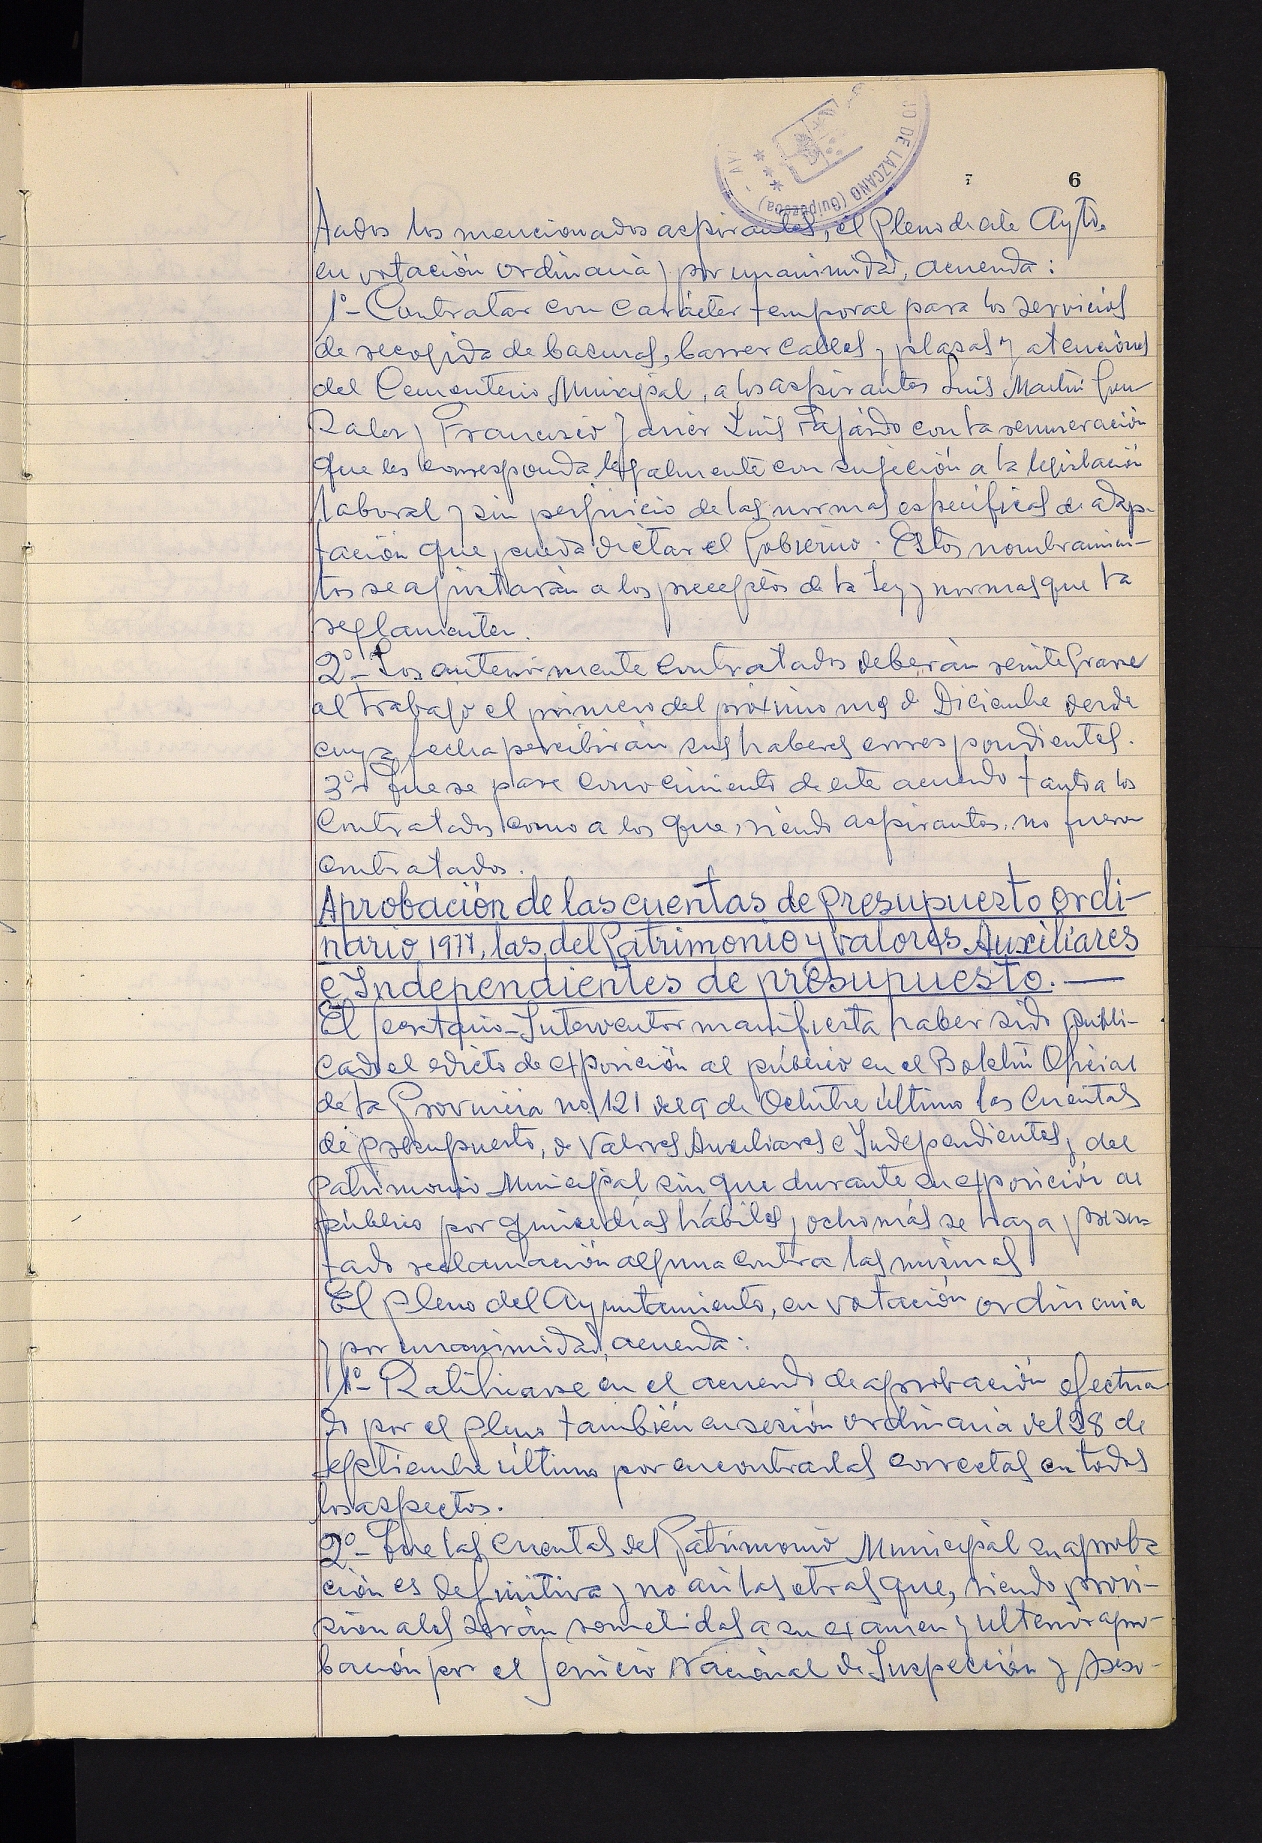 DE LAZCANO (Guipúzcoa)
6
tados los mencionados aspirantes, el Pleno de este Aytº.
en votación ordinaria y por unanimidad, acuerda:
1º- Contratar con carácter temporal para los servicios
de recogida de basuras, barrer calles y plazas y atenciones
del Cementerio Municipal, a los aspirantes Luis Martín Gon
zalez y Francisco Javier Luis Fajardo con la remuneración
que les corresponda legalmente con sujeción a la legislación
laboral y sin perjuicio de las normas específicas de adap-
tación que pueda dictar el Gobierno. Estos nombramien-
tos se ajustarán a los preceptos de la Ley y normas que la
reglamenten.
2º- Los anteriormente contratados deberán reintegrarse
al trabajo el primero del próximo mes de Diciembre desde
cuya fecha percibirán sus haberes correspondientes.
3º- Que se pase conocimiento de este acuerdo tanto a los
contratados como a los que, siendo aspirantes, no fueron
contratados.
Aprobación de las cuentas de Presupuesto Ordi-
nario 1977, las del Patrimonio y Valores Auxiliares
e Independientes de presupuesto.-
El Secretario-Interventor manifiesta haber sido publi-
cado el edicto de exposición al público en el Boletín Oficial
de la Provincia nº 121 del 9 de Octubre último las Cuentas
de presupuesto, de Valores Auxiliares e Independientes y del
Patrimonio Municipal sin que durante su exposición al
público por quince días hábiles y ocho más se haya presen-
tado reclamación alguna contra las mismas
El Pleno del Ayuntamiento, en votación ordinaria
y por unanimidad, acuerda:
1º- Ratificarse en el acuerdo de aprobación efectua
do por el Pleno también en sesión ordinaria del 28 de
Septiembre último por encontrarlas correctas en todos
los aspectos.
2º- Que las Cuentas del Patrimonio Municipal su aproba
ción es definitiva y no así las otras que, siendo provi-
sionales serán sometidas a su examen y ulterior apro-
bación por el Servicio Nacional de Inspección y Aseso-